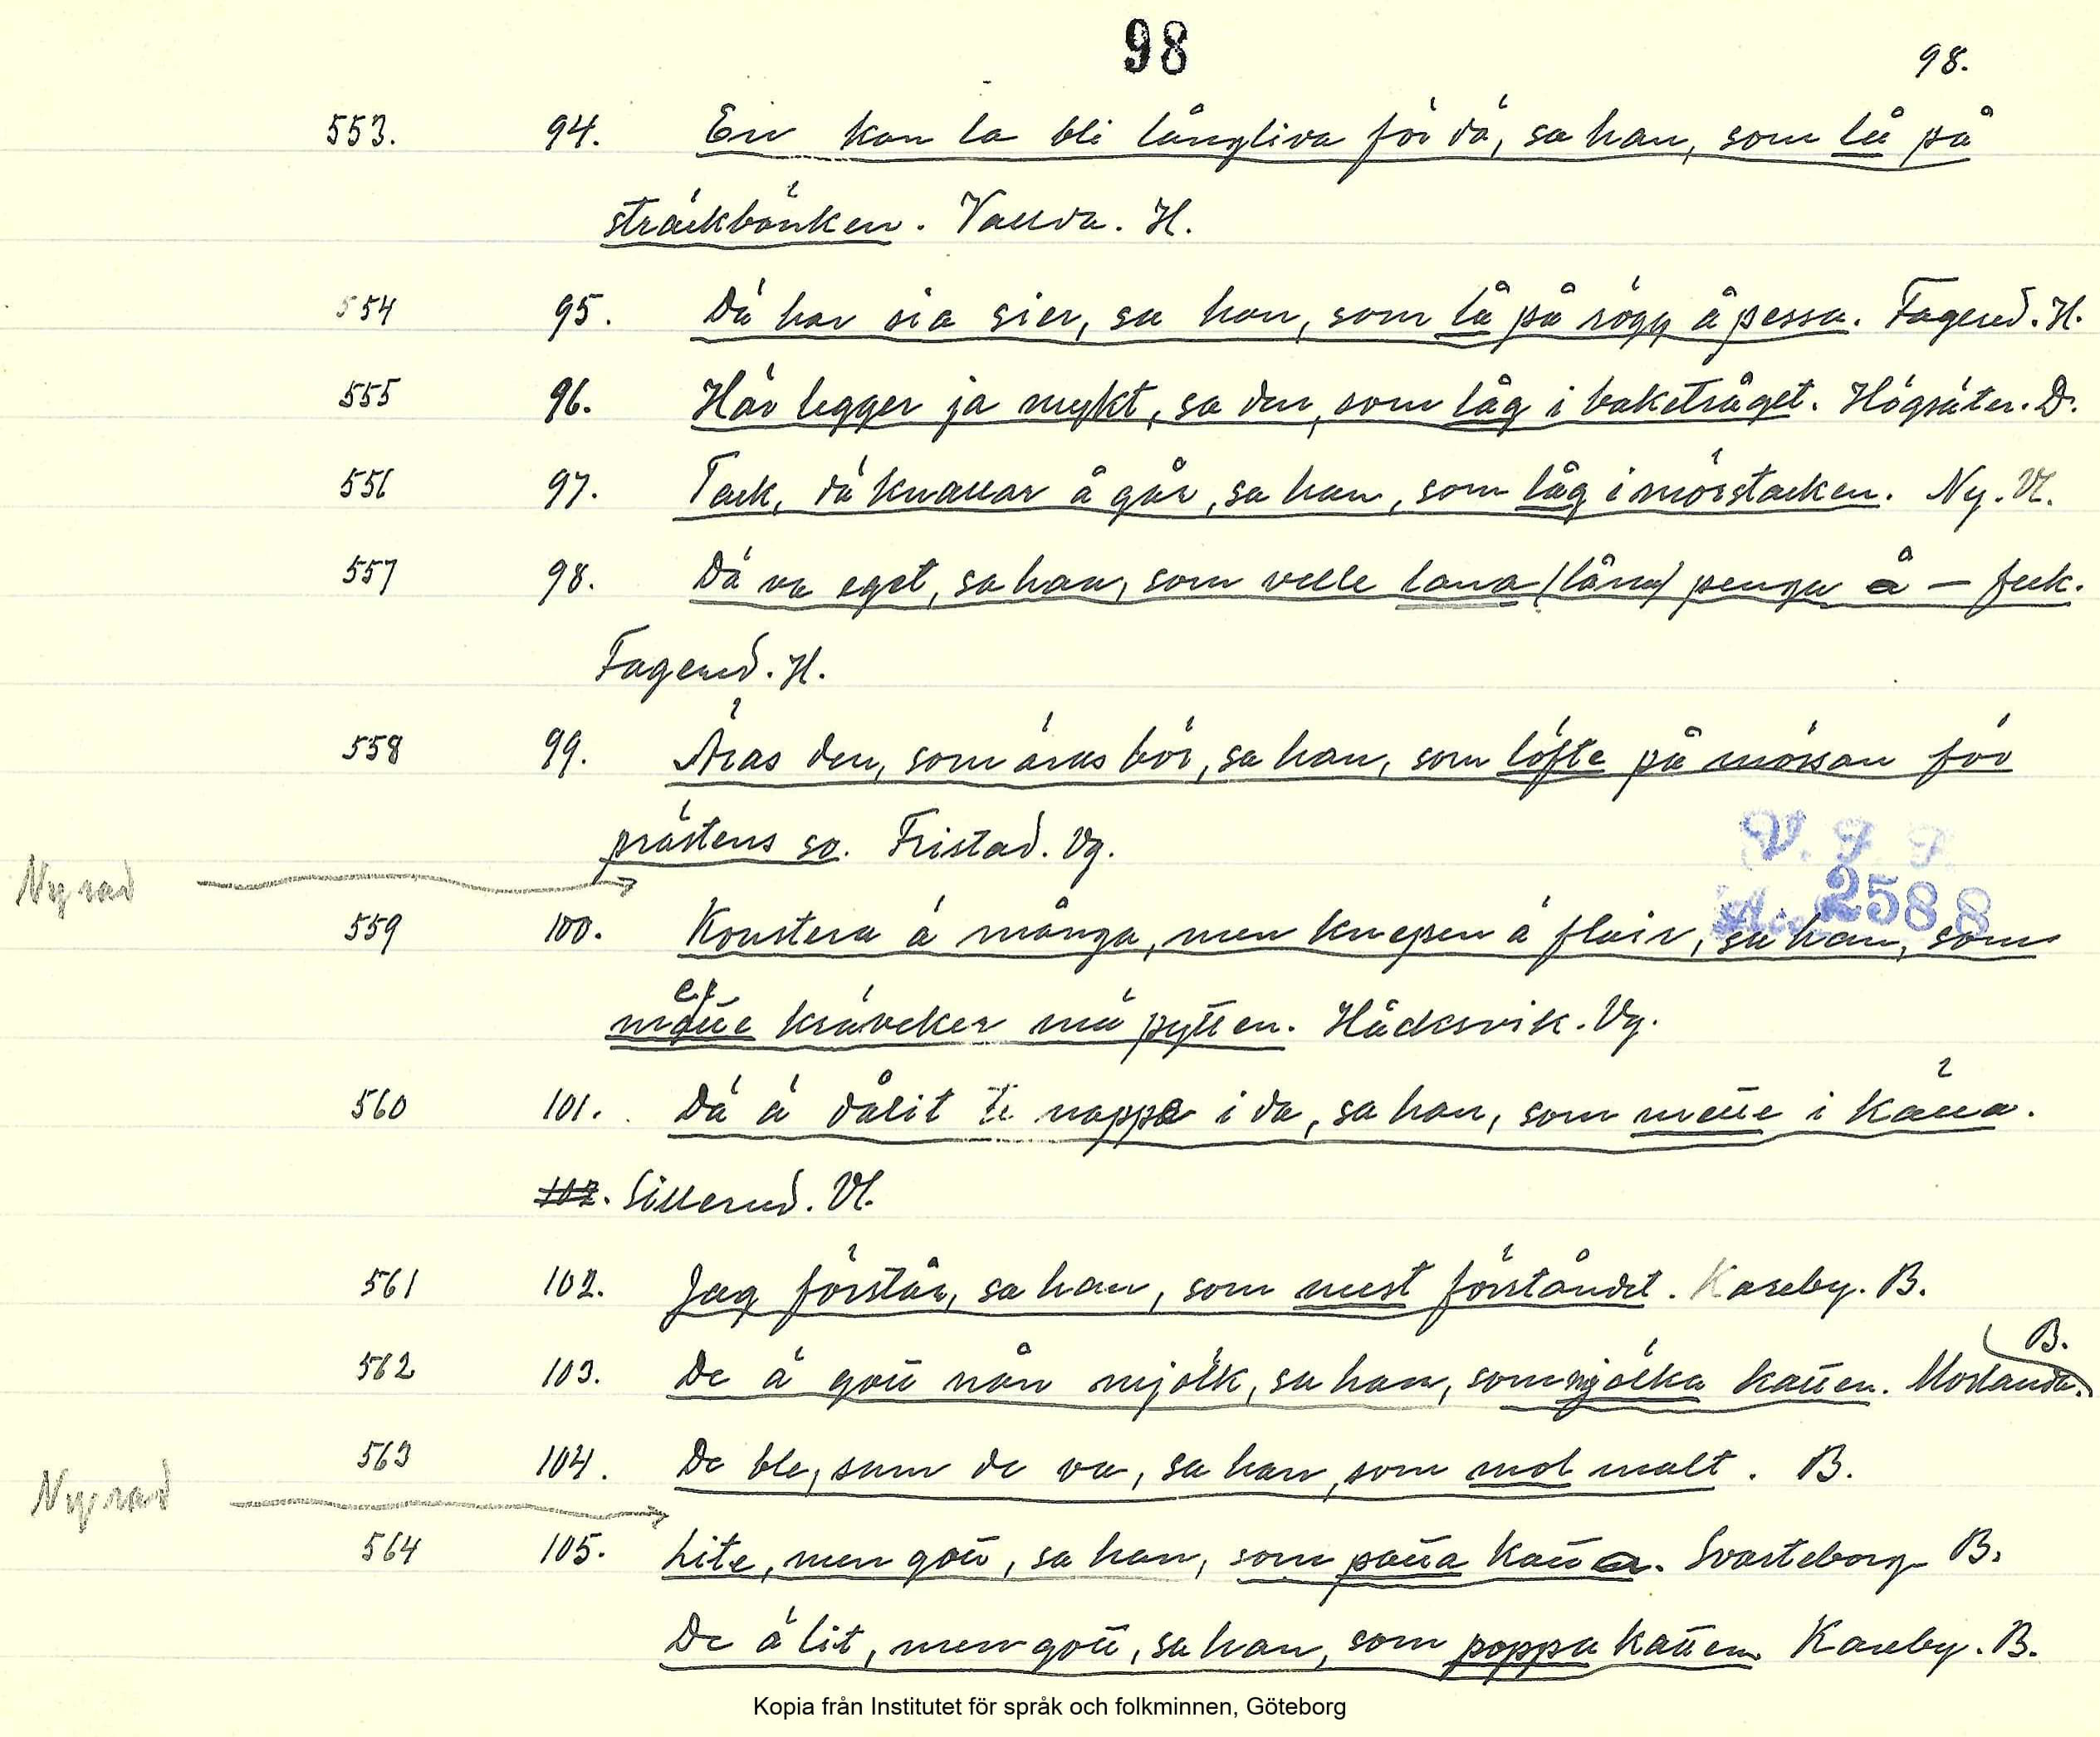 98
98.
553. 94. En kan la bli långliva för dä, sa han, som lå på
sträckbänken. Vallda. H.
554 95. Dä har sia sier, sa han, som lå på rögg å pessa. Fagered. H.
555 96. Här legger ja mykt, sa den, som låg i baketråget. Högsäter. D.
556 97. Tack, dä knallar å går, sa han, som låg i mörstacken. Ny. Vl.
557 98. Dä va eget, sa han, som velle lana (låna) penga å – fek.
Fagered. H.
558 99. Äras den, som äras bör, sa han, som löfte på mössan för
prästens so. Fristad. Vg.
Ny rad
V. F. F.
2588
559 100. Konstera ä många, men knepen ä fleir, sa han, som
kräveker mä pytten. Håcksvik. Vg.
560 101. Dä ä dålit te nappe i da, sa han, som mette i källa.
102. Sillerud. Vl.
561 102. Jag förstår, sa han, som mest förståndet. Kareby. B.
562 103. De ä gott nån mjölk, sa han, som mjölka katten. Morlanda. B.
563 104. De ble, sum de va, sa han, som mol malt. B.
Ny rad
564 105. Lite, men gott, sa han, som patta katta. Svarteborg B.
De ä lit, men gott, sa han, som poppa katten Kareby. B.
Kopia från Institutet för språk och folkminnen, Göteborg